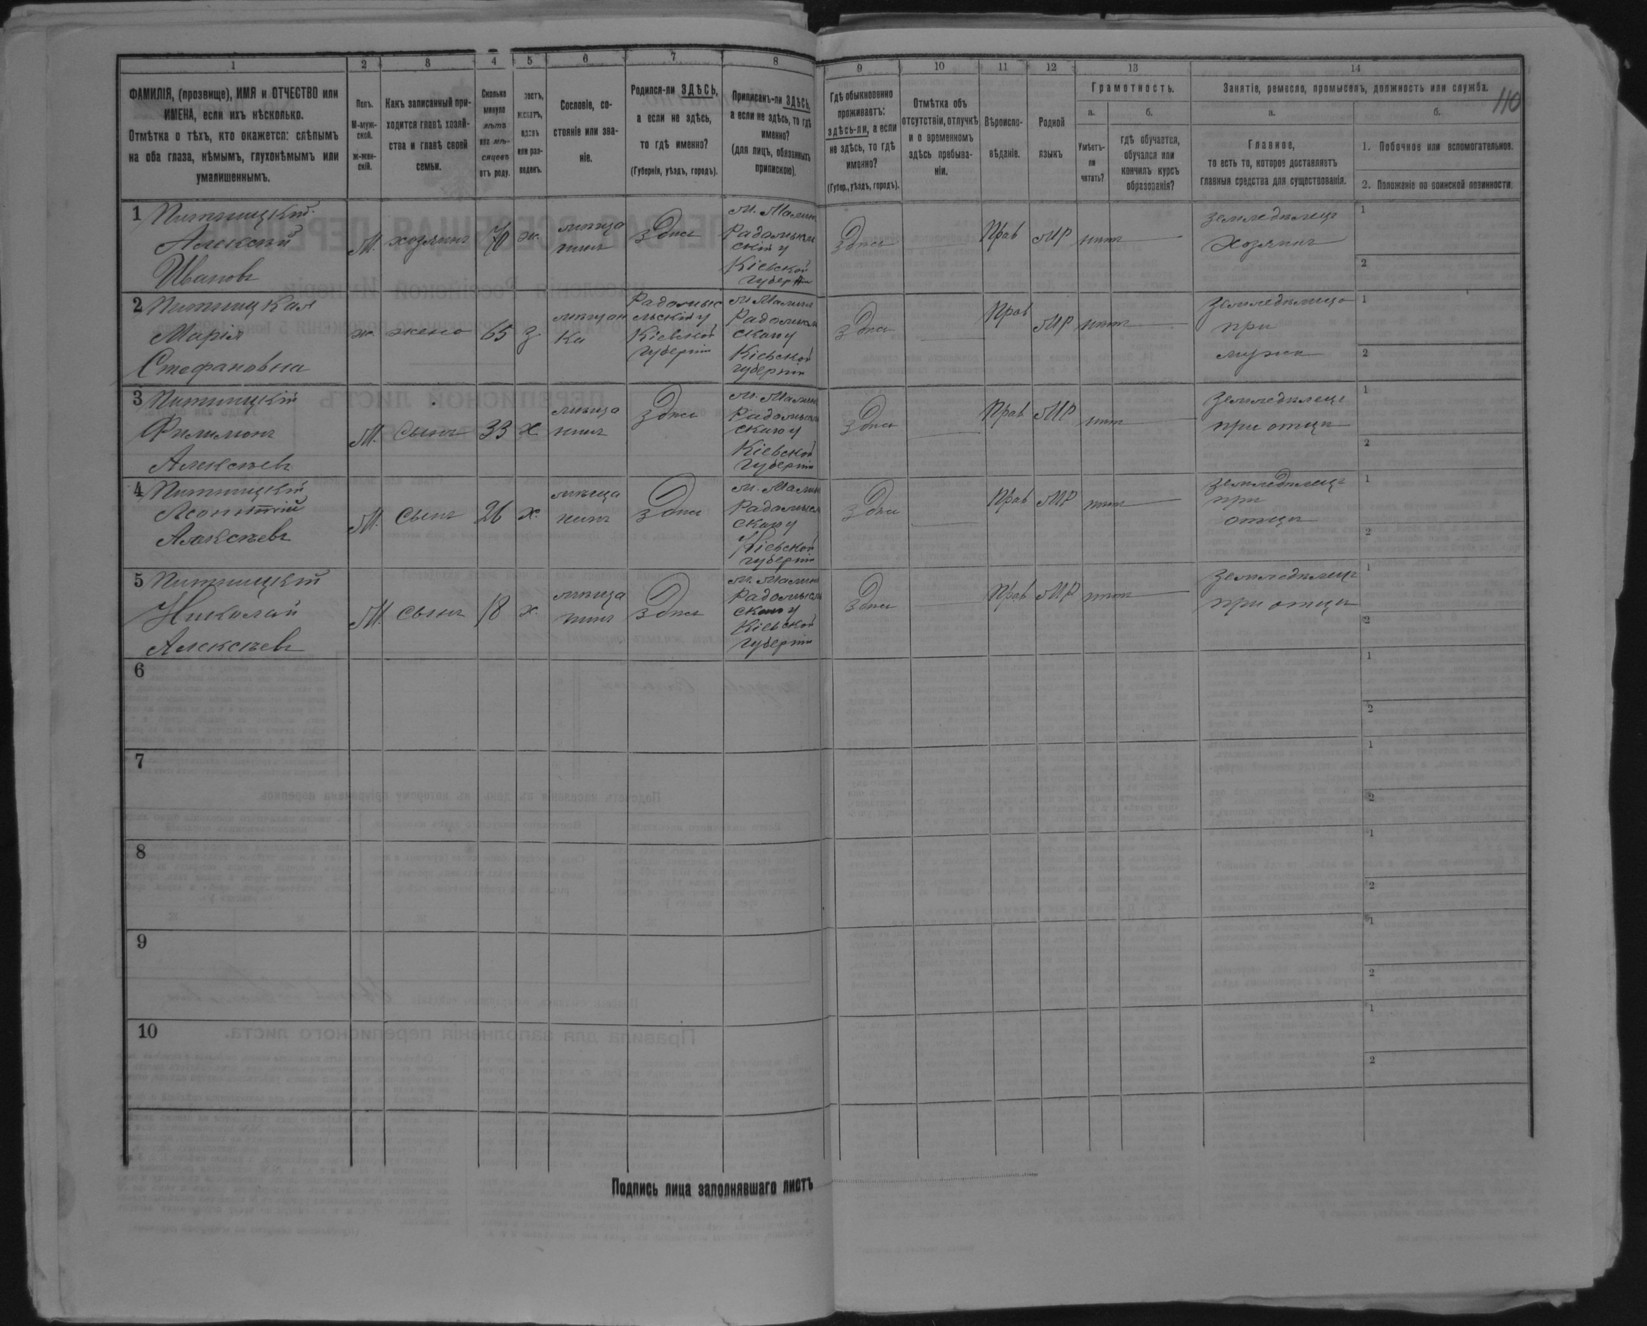 1 2 3 4 5 6 7 8 9 10 11 12 13 14
110
ФАМИЛІЯ, (прозвище), ИМЯ и ОТЧЕСТВО или
ИМЕНА, если ихъ нѣсколько.
Отмѣтка о тѣхъ, кто окажется: слѣпымъ
на оба глаза, нѣмымъ, глухонѣмымъ или
умалишеннымъ.
Полъ.
М-муж-
ской.
ж-жен-
скій.
Какъ записанный при-
ходится главѣ хозяй-
ства и главѣ своей
семьи.
Сколько
минуло
лѣтъ
или мѣ-
сяцевъ
отъ роду.
холостъ,
женатъ,
вдовъ
или раз-
веденъ.
Сословіе, со-
стояніе или зва-
ніе.
Родился-ли ЗДѢСЬ,
а если не здѣсь,
то гдѣ именно?
(Губернія, уѣздъ, городъ).
Приписанъ-ли ЗДѢСЬ,
а если не здѣсь, то гдѣ
именно?
(для лицъ, обязанныхъ
припискою).
Гдѣ обыкновенно
проживаетъ:
здѣсь-ли, а если
не здѣсь, то гдѣ
именно?
(Губер., уѣздъ, городъ).
Отмѣтка объ
отсутствіи, отлучкѣ
и о временномъ
здѣсь пребыва-
ніи.
Вѣроиспо-
вѣданіе.
Родной
языкъ
Грамотность.
а. б.
Умѣетъ-
ли
читать?
гдѣ обучается,
обучался или
кончилъ курсъ
образованія?
Занятіе, ремесло, промыселъ, должность или служба.
а. б.
Главное,
то есть то, которое доставляетъ
главныя средства для существованія.
1. Побочное или вспомогательное.
2. Положеніе по воинской повинности.
1 Пятницкій
Алексѣй
Ивановъ
М. хозяинъ 70 ж. мѣща
нинъ
Здѣсь
м. Малинъ
Радомысль
Кіевской
губерн
Здѣсь
Прав МР нѣтъ
Земледѣлецъ
хозяинъ
1
2
2 Пятницкая
Марія
Стефановна
ж. жена 65 з. мѣщан
ка
Радомысль
скій у
Кіевской
губерніи
м. Малинъ
Радомысль
скаго у
Кіевской
губерніи
здѣсь
Прав МР нѣтъ
Земледѣлецъ
при
мужѣ
1
2
3 Пятницкій
Филимонъ
Алексѣевъ
М. сынъ 33 х. мѣща
нинъ
Здѣсь
м. Малинъ
Радомысль
скаго у
Кіевской
губерніи
Здѣсь
Прав МР нѣтъ
Земледѣлецъ
при отцѣ
1
2
4 Пятницкій
Леонтій
Алексѣевъ
М. сынъ 26 х. мѣща
нинъ
Здѣсь
м. Малинъ
Радомысль
скаго у
Кіевской
губерніи
Здѣсь
Прав МР нѣтъ
Земледѣлецъ
при
отцѣ
1
2
5 Пятницкій
Николай
Алексѣевъ
М. сынъ 18 х. мѣща
нинъ
Здѣсь
м. Малинъ
Радомысль
скаго у
Кіевской
губерніи
Здѣсь
Прав МР нѣтъ
Земледѣлецъ
при отцѣ
1
2
6
1
2
7
1
2
8
1
2
9
1
2
10
1
2
Подпись лица заполнявшаго листъ